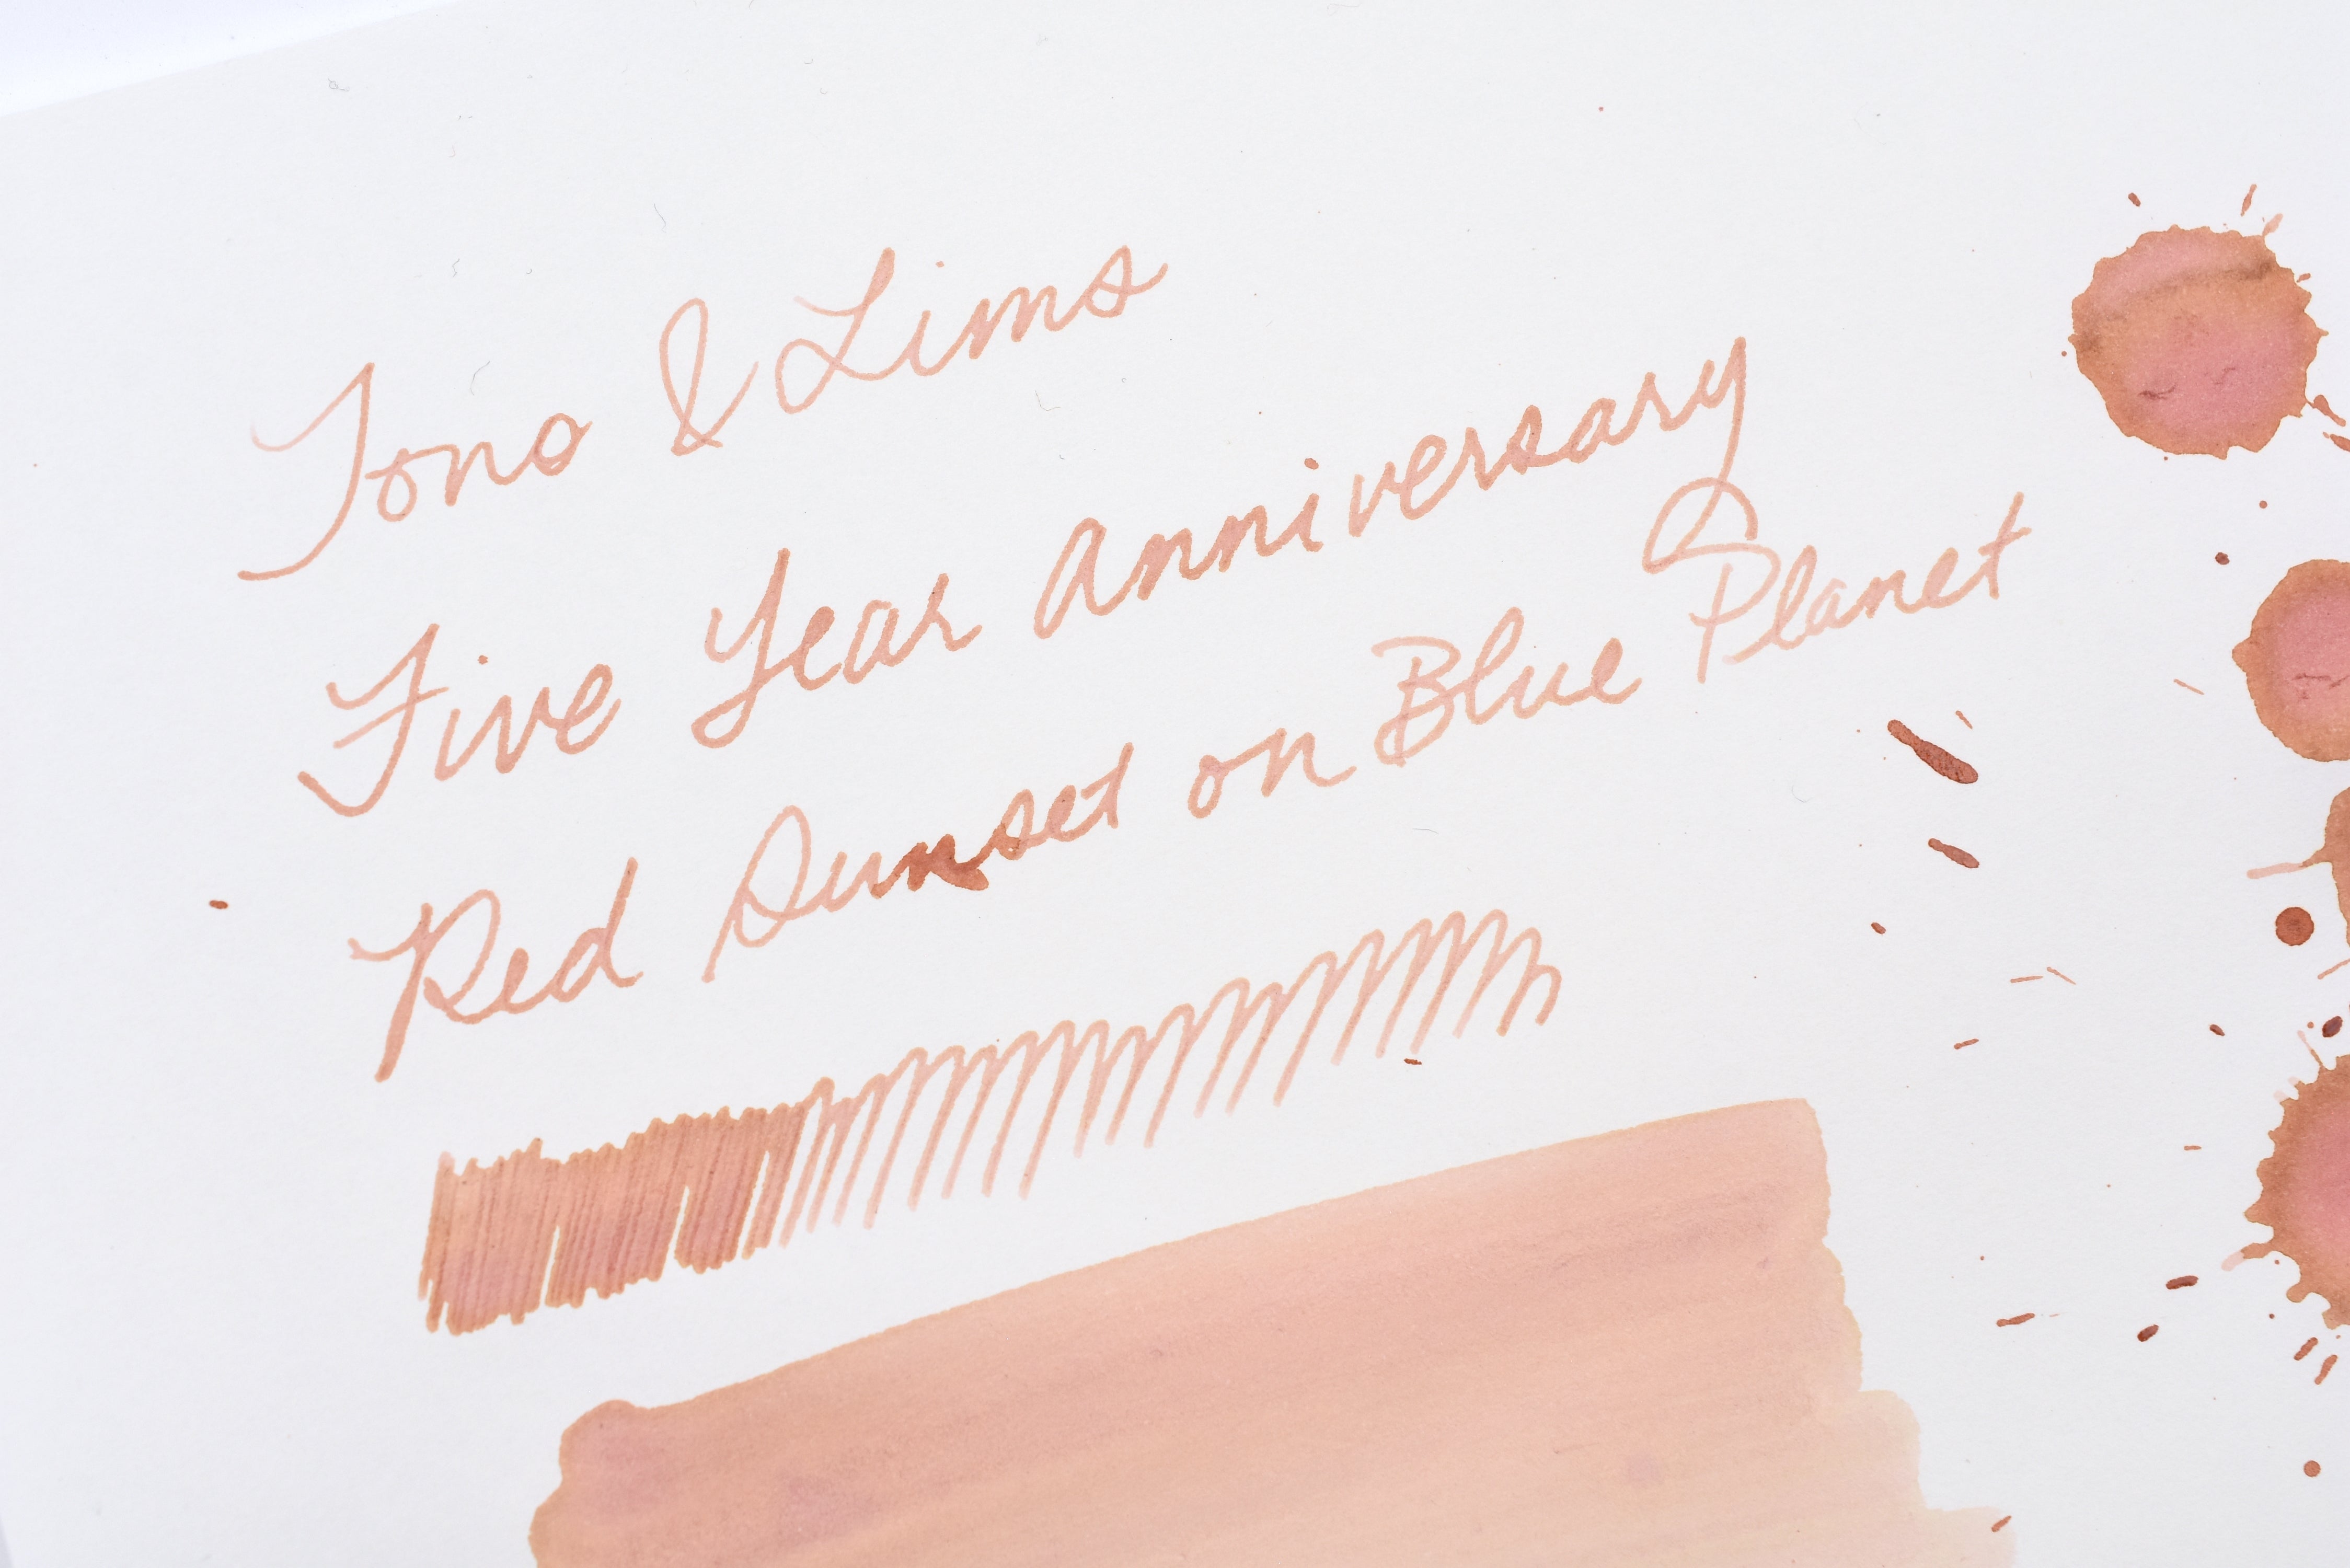 Tono & Lims
Five Year Anniversary
Red Sunset on Blue Planet